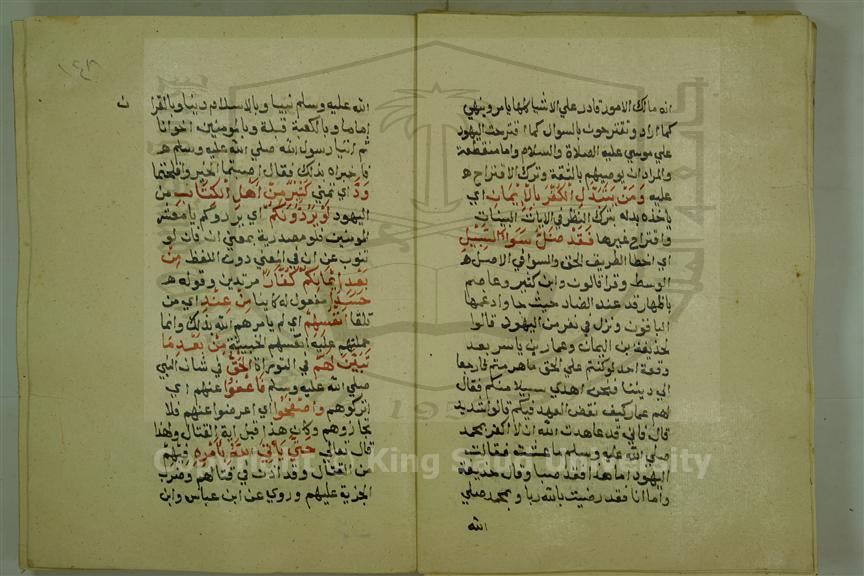 الله مالك الامور قادر علي الاشيا كلها يامر وينهي
كما اراد وتقترحون بالسوال كما اقترحت اليهود
علي موسي عليه الصلاة والسلام واما منقطعة
والمراد ان يوصيهم بالثقة وترك الاقتراح
عليه ومن يتبدل الكفر بالايمان اي
ياخذه بدله بترك النظر في الايات البينات
واقتراح غيرها فقد ضل سوا السبيل
اي اخطا الطريق الحق والسوا في الاصل
الوسط وقرا قالون وابن كثير وعاصم
باظهار قد عند الضاد حيث جا وادغمها
الباقون ونزل في نفر من اليهود قالوا
لحذيفة بن اليمان وعمار بن ياسر بعد
وقعة احد لو كنتم علي الحق ما هزمتم فارجعا
الي ديننا فنحن اهدي سبيلا منكم فقال
لهم عمار كيف نقض العهد فيكم قالوا شديد
قال فاني قد عاهدت الله ان لا اكفر بمحمد
صلي الله عليه وسلم ما عشت فقالت
اليهود اما هذا فقد صبا وقال حذيفة
واما انا فقد رضيت بالله ربا وبمحمد صلي
الله
١٤٨
الله عليه وسلم نبيا وبالاسلام دينا وبالقران
اماما وبالكعبة قبلة وبالمومنين اخوانا
ثم اتيا رسول الله صلي الله عليه وسلم
فاخبراه بذلك فقال اصبتما الخير وافلحتما
ود اي تمني كثير من اهل الكتاب من
اليهود لو يردونكم اي يردوكم يا معشر
المومنين فلو مصدرية بمعني ان فان لو
تنوب عن ان في المعني دون اللفظ من
بعد ايمانكم كفارا مرتدين وقوله
حسدا مفعول له كاينا من عند اي من
تلقا انفسهم اي لم يامرهم الله بذلك وانما
حملتهم عليه انفسهم الخبيثة من بعد ما
تبين لهم في التوراة الحق في شان النبي
صلي الله عليه وسلم فاعفوا عنهم اي
اتركوهم واصفحوا اي اعرضوا عنهم فلا
تجازوهم وكان هذا قبل اية القتال ولهذا
قال تعالي حتي ياتي الله بامره فيهم
من القتال وقد اذن في قتالهم وضرب
الجزية عليهم وروي عن ابن عباس وابن
Copyright © King Saud University
195